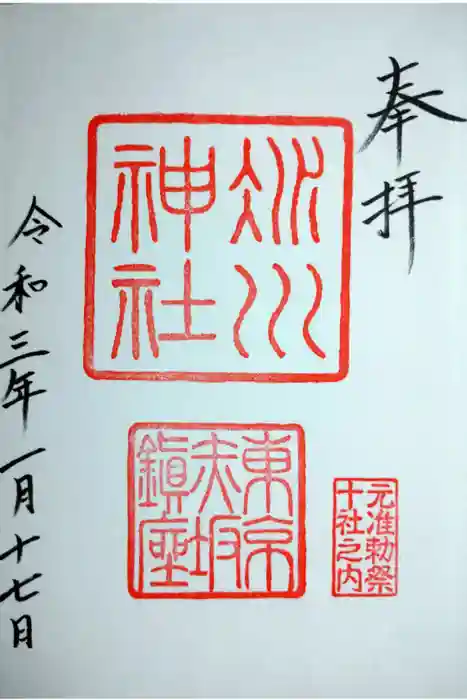 奉拝
氷川
神社
東京
赤坂
鎮座
元准勅祭
十社之内
令和三年一月十七日